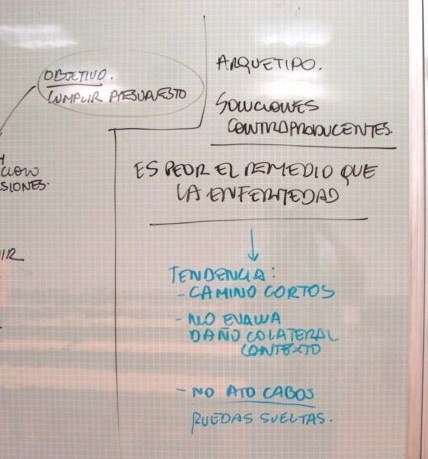 OBJETIVO.
CUMPLIR PRESUPUESTO
SIONES.
ARQUETIPO.
SOLUCIONES
CONTRAPRODUCENTES.
ES PEOR EL REMEDIO QUE
LA ENFERMEDAD
TENDENCIA:
- CAMINO CORTOS
- NO EVALUA
DAÑO COLATERAL
CONTEXTO
- NO ATO CABOS
RUEDAS SUELTAS.